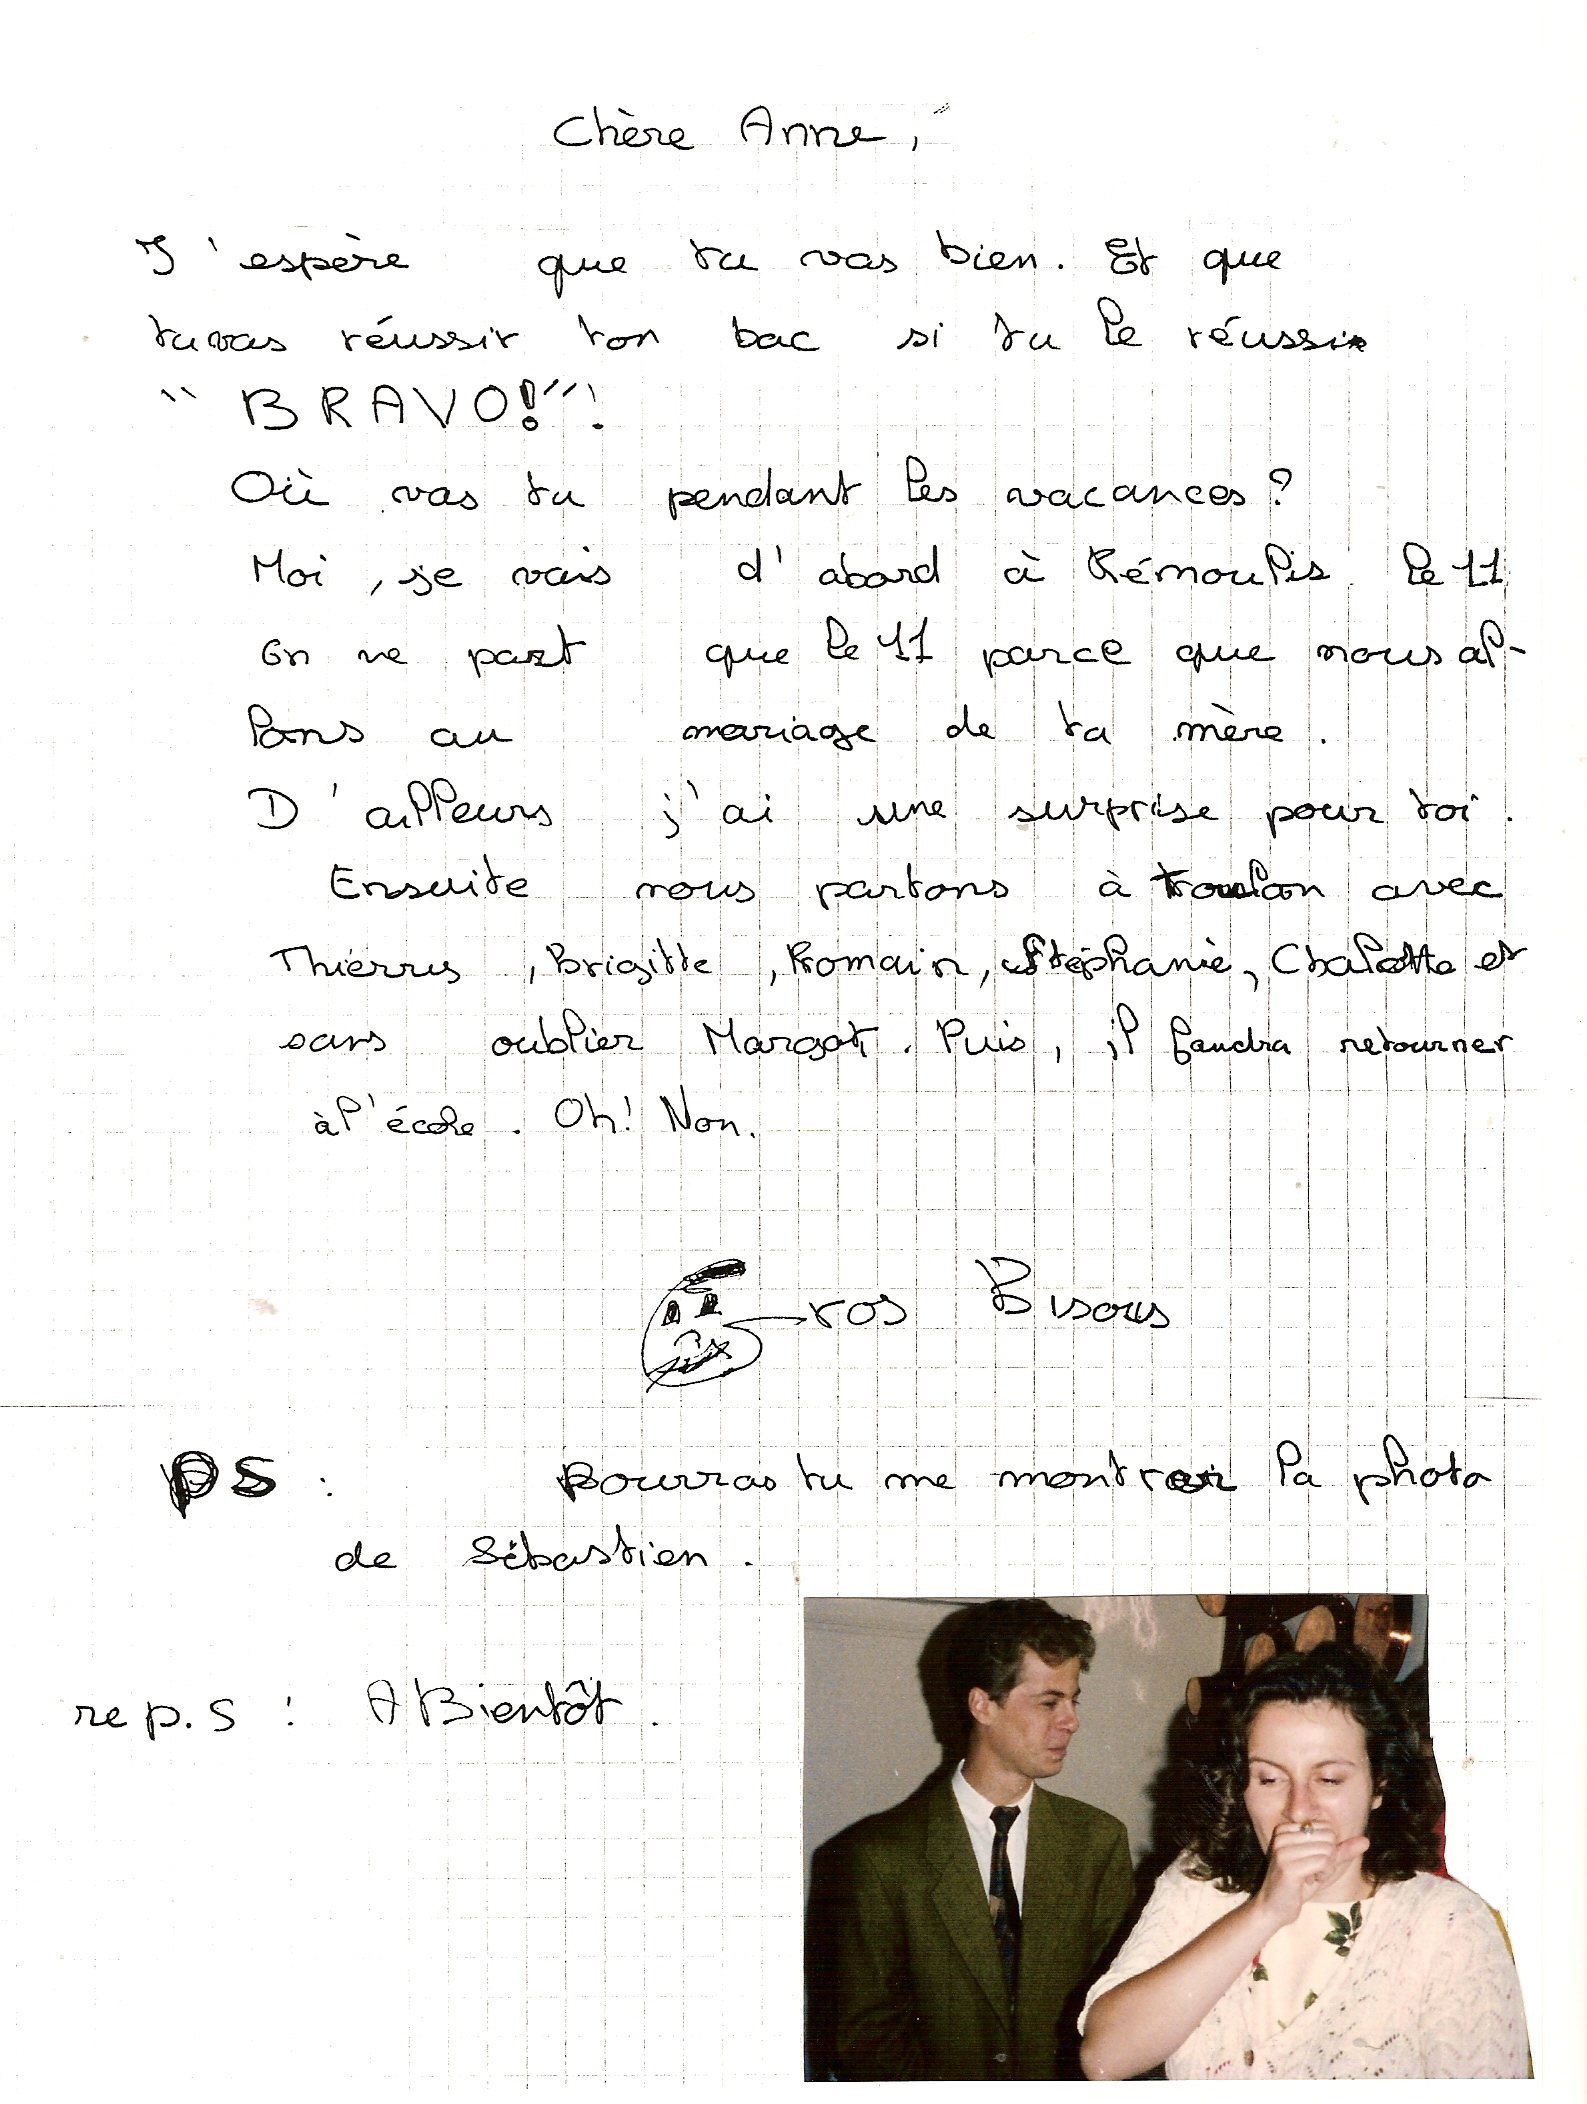 Chère Anne,
J'espère que tu vas bien. Et que
tu vas réussir ton bac si tu le réussie
"BRAVO!"!
Où vas tu pendant les vacances ?
Moi, je vais d'abord à Rémoulis le 11
on ne part que le 11 parce que nous al-
lons au mariage de ta mère.
D'ailleurs j'ai une surprise pour toi.
Ensuite nous partons à toulon avec
Thierry, Brigitte, Romain, Stéphanie, Chalotte et
sans oublier Margot. Puis, il faudra retourner
à l'école. Oh! Non.
Gros Bisous
PS : pourras tu me montrer la photo
de Sébastien.
re p.s : A Bientôt.